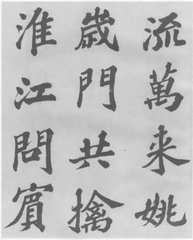 流萬来姚
歳門共擒
淮江問賓